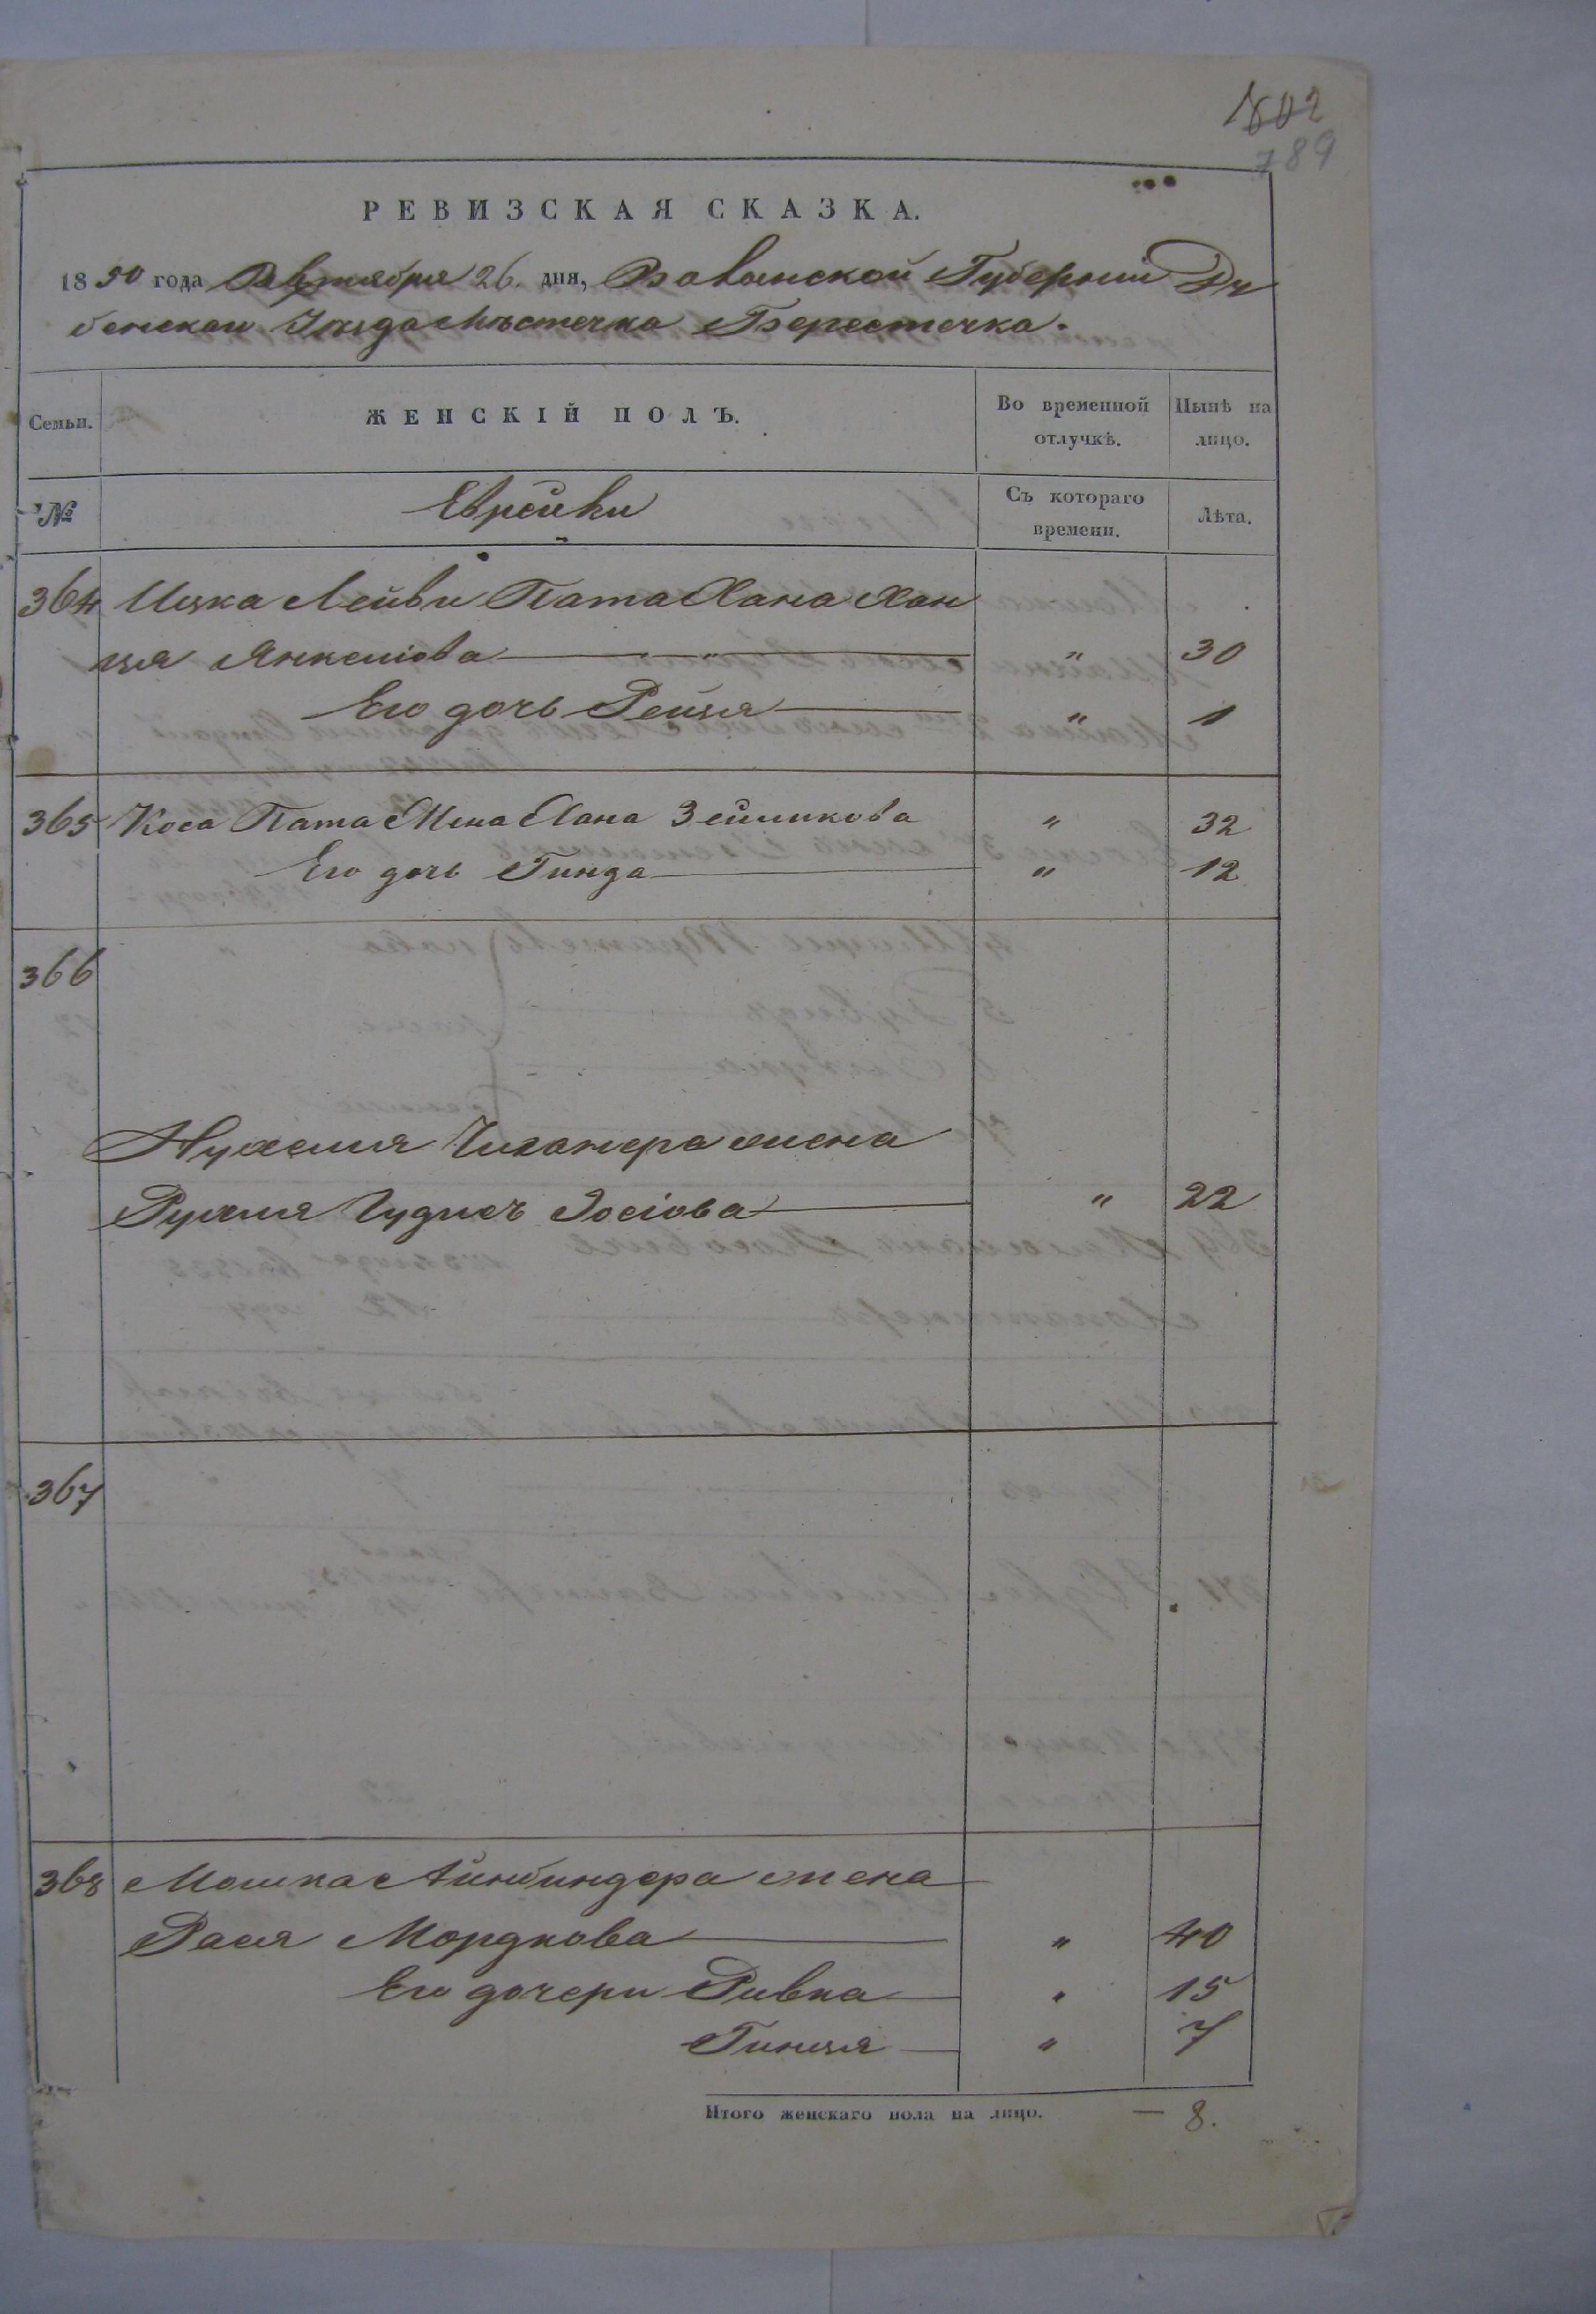 1802
789
РЕВИЗСКАЯ СКАЗКА.
1850 года Октября 26. дня, Волынской Губернии Ду
бенскаго Уѣзда Мѣстечка Берестечка.
Семьи.
ЖЕНСКІЙ ПОЛЪ.
Во временной отлучкѣ.
Нынѣ на лицо.
№
Еврейки
Съ котораго времени.
Лѣта.
364 Ицка Лейви Пата Хана Хан
ця Янкелiова " 30
Его дочь Рейзя " 1
365 Коса Пата Хана Зейликова " 32
Его дочь Гинда " 12
366
Нухема жена
Рухля Iосiова " 22
367
368 Мошка Айнбиндера жена
Рася Мордкова " 40
Его дочери Ривка " 15
Гинзя " 7
Итого женскаго пола на лицо. — 8.